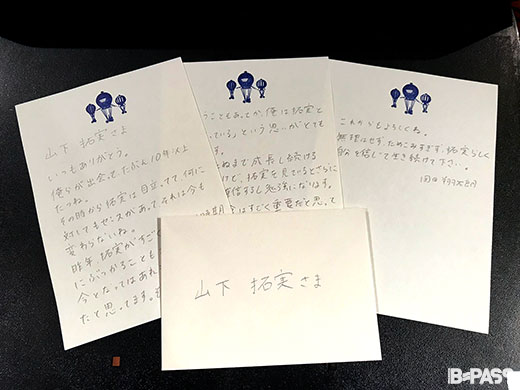 山下 拓実さま
いつもありがとう。
俺らが出会ってたぶん10年以上
たつね。
その時から拓実は目立ってて何に
対してもセンスがあって、それは今も
変わらないね。
昨年 拓実がすごく
にぶつかることも
今となってはあれ
だと思ってます。
うこともあってか、俺は拓実と
ている」という思いがとても
ぬまで成長し続ける
けど、拓実を見ているとさらに
信するし勉強になります。
時期今はすごく重要だと思って
これからもよろしくね。
無理はせず、ためこみすぎず、拓実らしく
自分を信じて生き続けて下さい。
山下 拓実さま
B-PASS